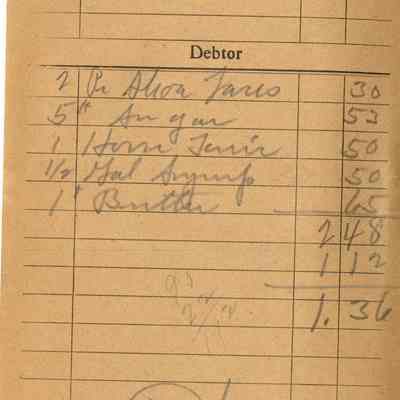 Debtor
2 Pr Shoe Laces 30
5# Sugar 53
1 50
1/2 Gal Syrup 50
1# Butter 65
2 48
1 12
1. 36